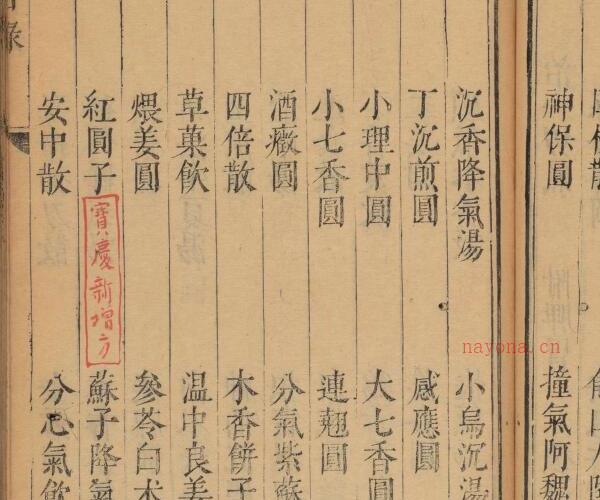 神保圓
撞氣阿魏
沉香降氣湯
小烏沉湯
丁沉煎圓
感應圓
小理中圓
大七香圓
小七香圓
連翹圓
酒癥圓
分氣紫蘇
四倍散
木香餅子
草菓飲
温中良姜
煨姜圓
參苓白术
紅圓子
寶慶新增方
蘇子降氣
安中散
分心氣飲
nayona.cn